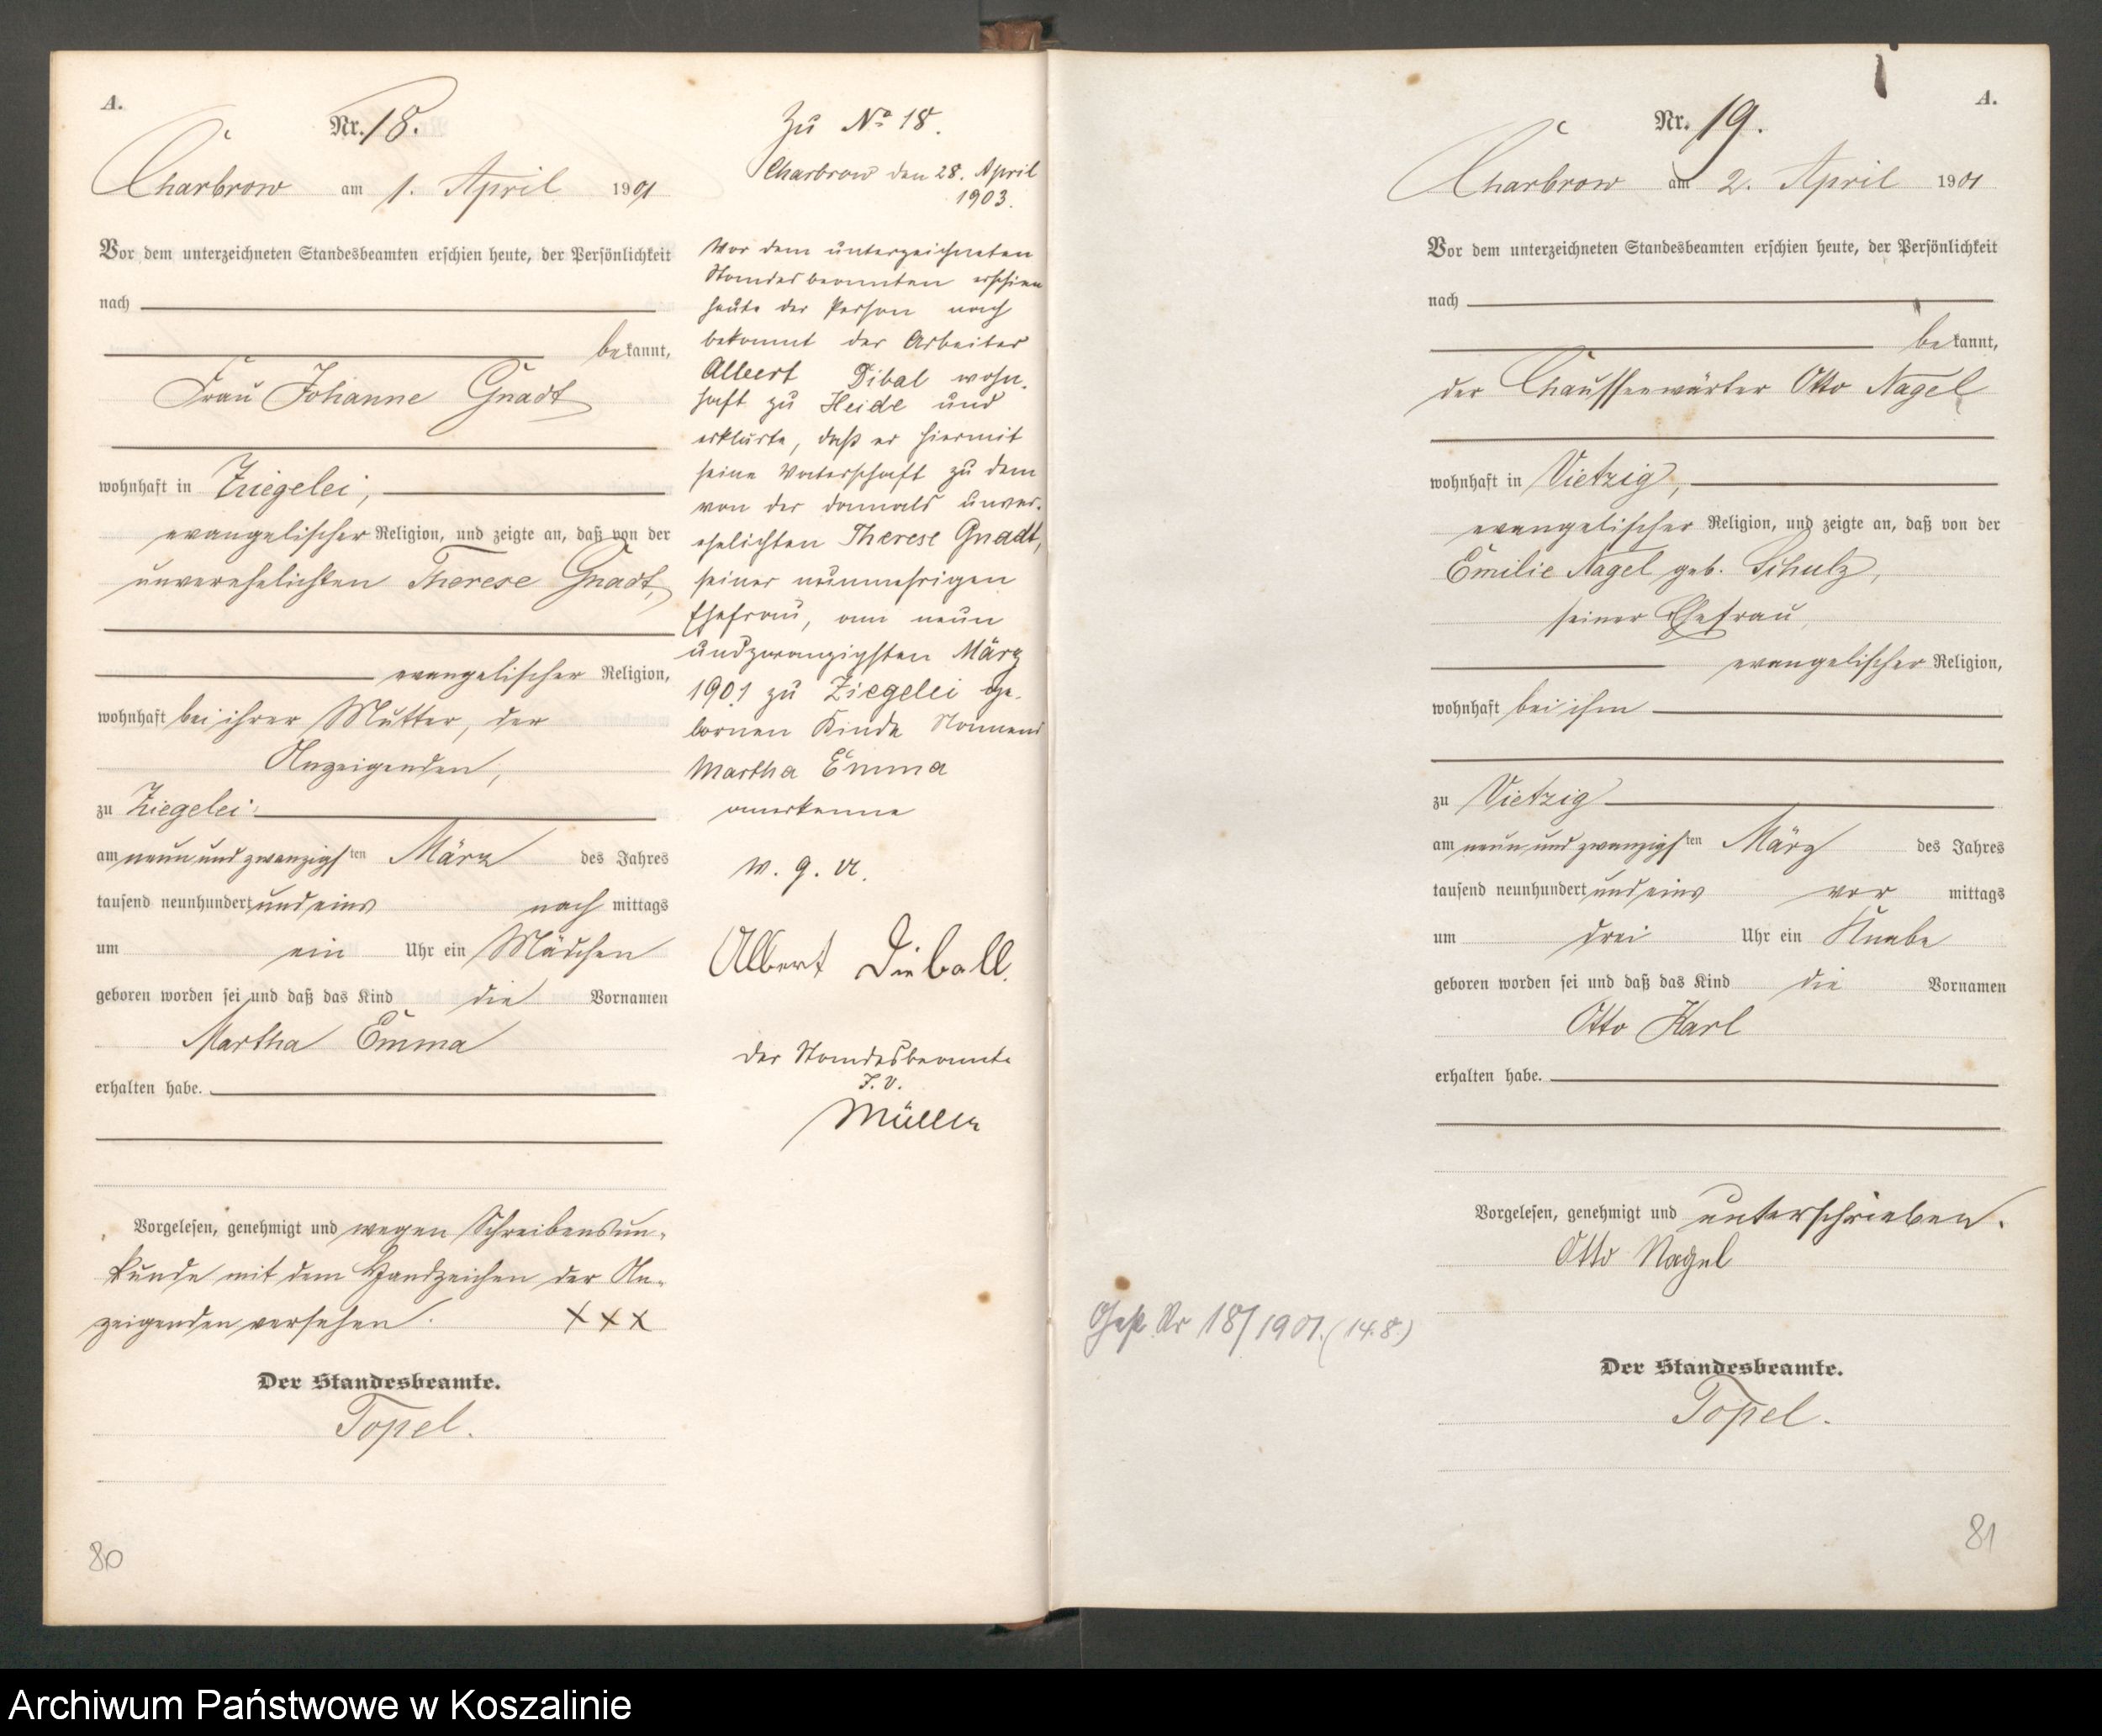 A.
Nr. 18.
Charbrow am 1. April 1901
Vor dem unterzeichneten Standesbeamten erschien heute, der Persönlichkeit
nach
bekannt,
Frau Johanne Gnadt
wohnhaft in Ziegelei,
evangelischer Religion, und zeigte an, daß von der
unverehelichten Therese Gnadt,
evangelischer Religion,
wohnhaft bei ihrer Mutter, der
Anzeigenden,
zu Ziegelei
am neun und zwanzigsten März des Jahres
tausend neunhundert und eins nach mittags
um ein Uhr ein Mädchen
geboren worden sei und daß das Kind die Vornamen
Martha Emma
erhalten habe.
Vorgelesen, genehmigt und wegen Schreibensun-
kunde mit dem Handzeichen der An-
zeigenden versehen. XXX
Der Standesbeamte.
Topel.
80
Zu No 18.
Charbrow den 28. April
1903.
Vor dem unterzeichneten
Standesbeamten erschien
heute der Person nach
bekannt der Arbeiter
Albert Dibal wohn-
haft zu Heide und
erklärte, daß er hiermit
seine Vaterschaft zu dem
von der damals unver-
ehelichten Therese Gnadt,
seiner nunmehrigen
Ehefrau, am neun
undzwanzigsten März
1901 zu Ziegelei ge-
bornen Kinde Namens
Martha Emma
anerkenne
v. g. u.
Albert Dieball.
Der Standesbeamte
J. V.
Müller
A.
Nr. 19.
Charbrow am 2. April 1901
Vor dem unterzeichneten Standesbeamten erschien heute, der Persönlichkeit
nach
bekannt,
der Chausseewärter Otto Nagel
wohnhaft in Vietzig,
evangelischer Religion, und zeigte an, daß von der
Emilie Nagel geb. Schulz,
seiner Ehefrau,
evangelischer Religion,
wohnhaft bei ihm
zu Vietzig
am neun und zwanzigsten März des Jahres
tausend neunhundert und eins vor mittags
um drei Uhr ein Knabe
geboren worden sei und daß das Kind die Vornamen
Otto Karl
erhalten habe.
Vorgelesen, genehmigt und unterschrieben.
Otto Nagel
Nr 18/1901. (14.8.)
Der Standesbeamte.
Topel.
81
Archiwum Państwowe w Koszalinie